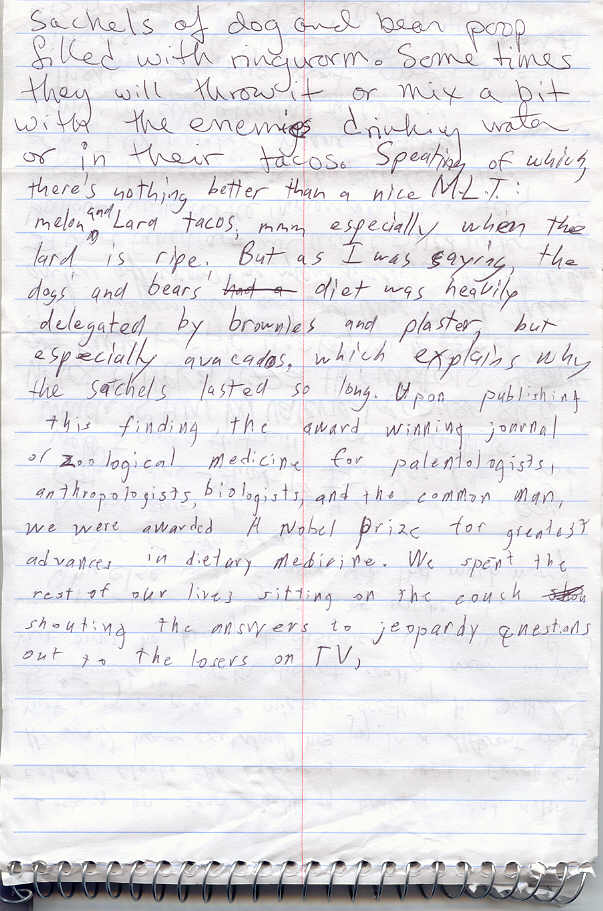 Sachels of dog and bear poop
filled with ringworm. Some times
they will throw it or mix a bit
with the enemies drinking water
or in their tacos. Speating of which,
there's nothing better than a nice M.L.T.:
melon and Lard tacos, mmm especially when the
lard is ripe. But as I was saying, the
dogs' and bears' had a diet was heavily
delegated by brownies and plaster, but
especially avacados, which explains why
the sachels lasted so long. Upon publishing
this finding, the award winning jonrnal
of zoological medicine for palentologists,
anthropologists, biologists, and the common man,
we were awarded A Nobel prize for greatest
advances in dietary medicine. We spent the
rest of our lives sitting on the couch
shouting the answers to jeopardy questions
out to the losers on TV,